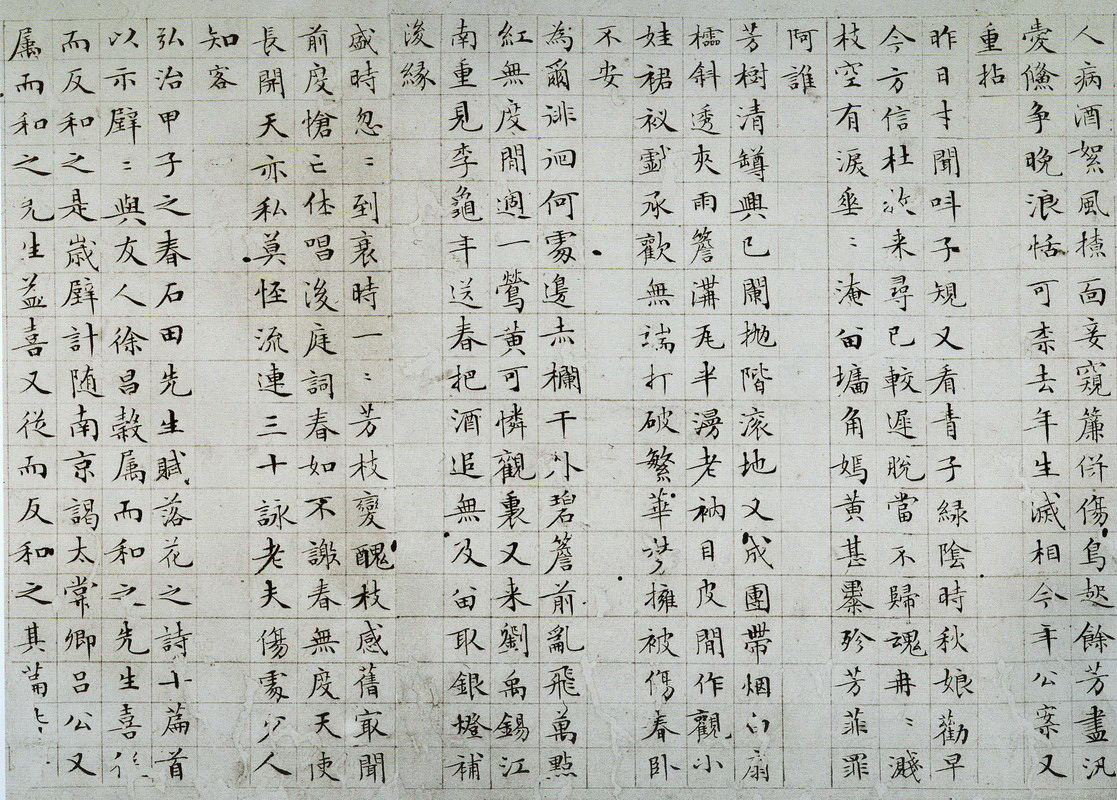 人病酒絮風面妾窺簾併傷鳥起餘芳盡汎
愛儵争晚浪恬可柰去年生滅相今年公案又
重拈
昨日才聞叫子規又看青子綠陰時秋娘勸早
今方信杜牧来尋已較遲脫當不歸魂冉〻濺
枝空有淚垂〻淹留墻角嫣黃甚纍殄芳菲罪
阿誰
芳樹清罇興已闌抛階滚地又成團帶烟白扇
櫺斜透夾雨簷溝瓦半漫老衲目皮閒作觀小
娃裙衩戲承歡無端打破繁華夢擁被傷春卧
不安
為爾徘徊何處邊赤欄干外碧簷前亂飛萬點
紅無度閒過一鶯黃可憐觀裏又来劉禹錫江
南重見李龜年送春把酒追無及留取銀燈補
後緣
盛時忽〻到衰時一〻芳枝變醜枝感舊寂聞
前度愴亡休唱後庭詞春如不謝春無度天使
長開天亦私莫怪流連三十詠老夫傷處少人
知客
弘治甲子之春石田先生賦落花之詩十篇首
以示璧〻與友人徐昌穀属而和之先生喜從
而反和之是歲璧計随南京謁太常卿呂公又
属而和之先生益喜又從而反和之其篇